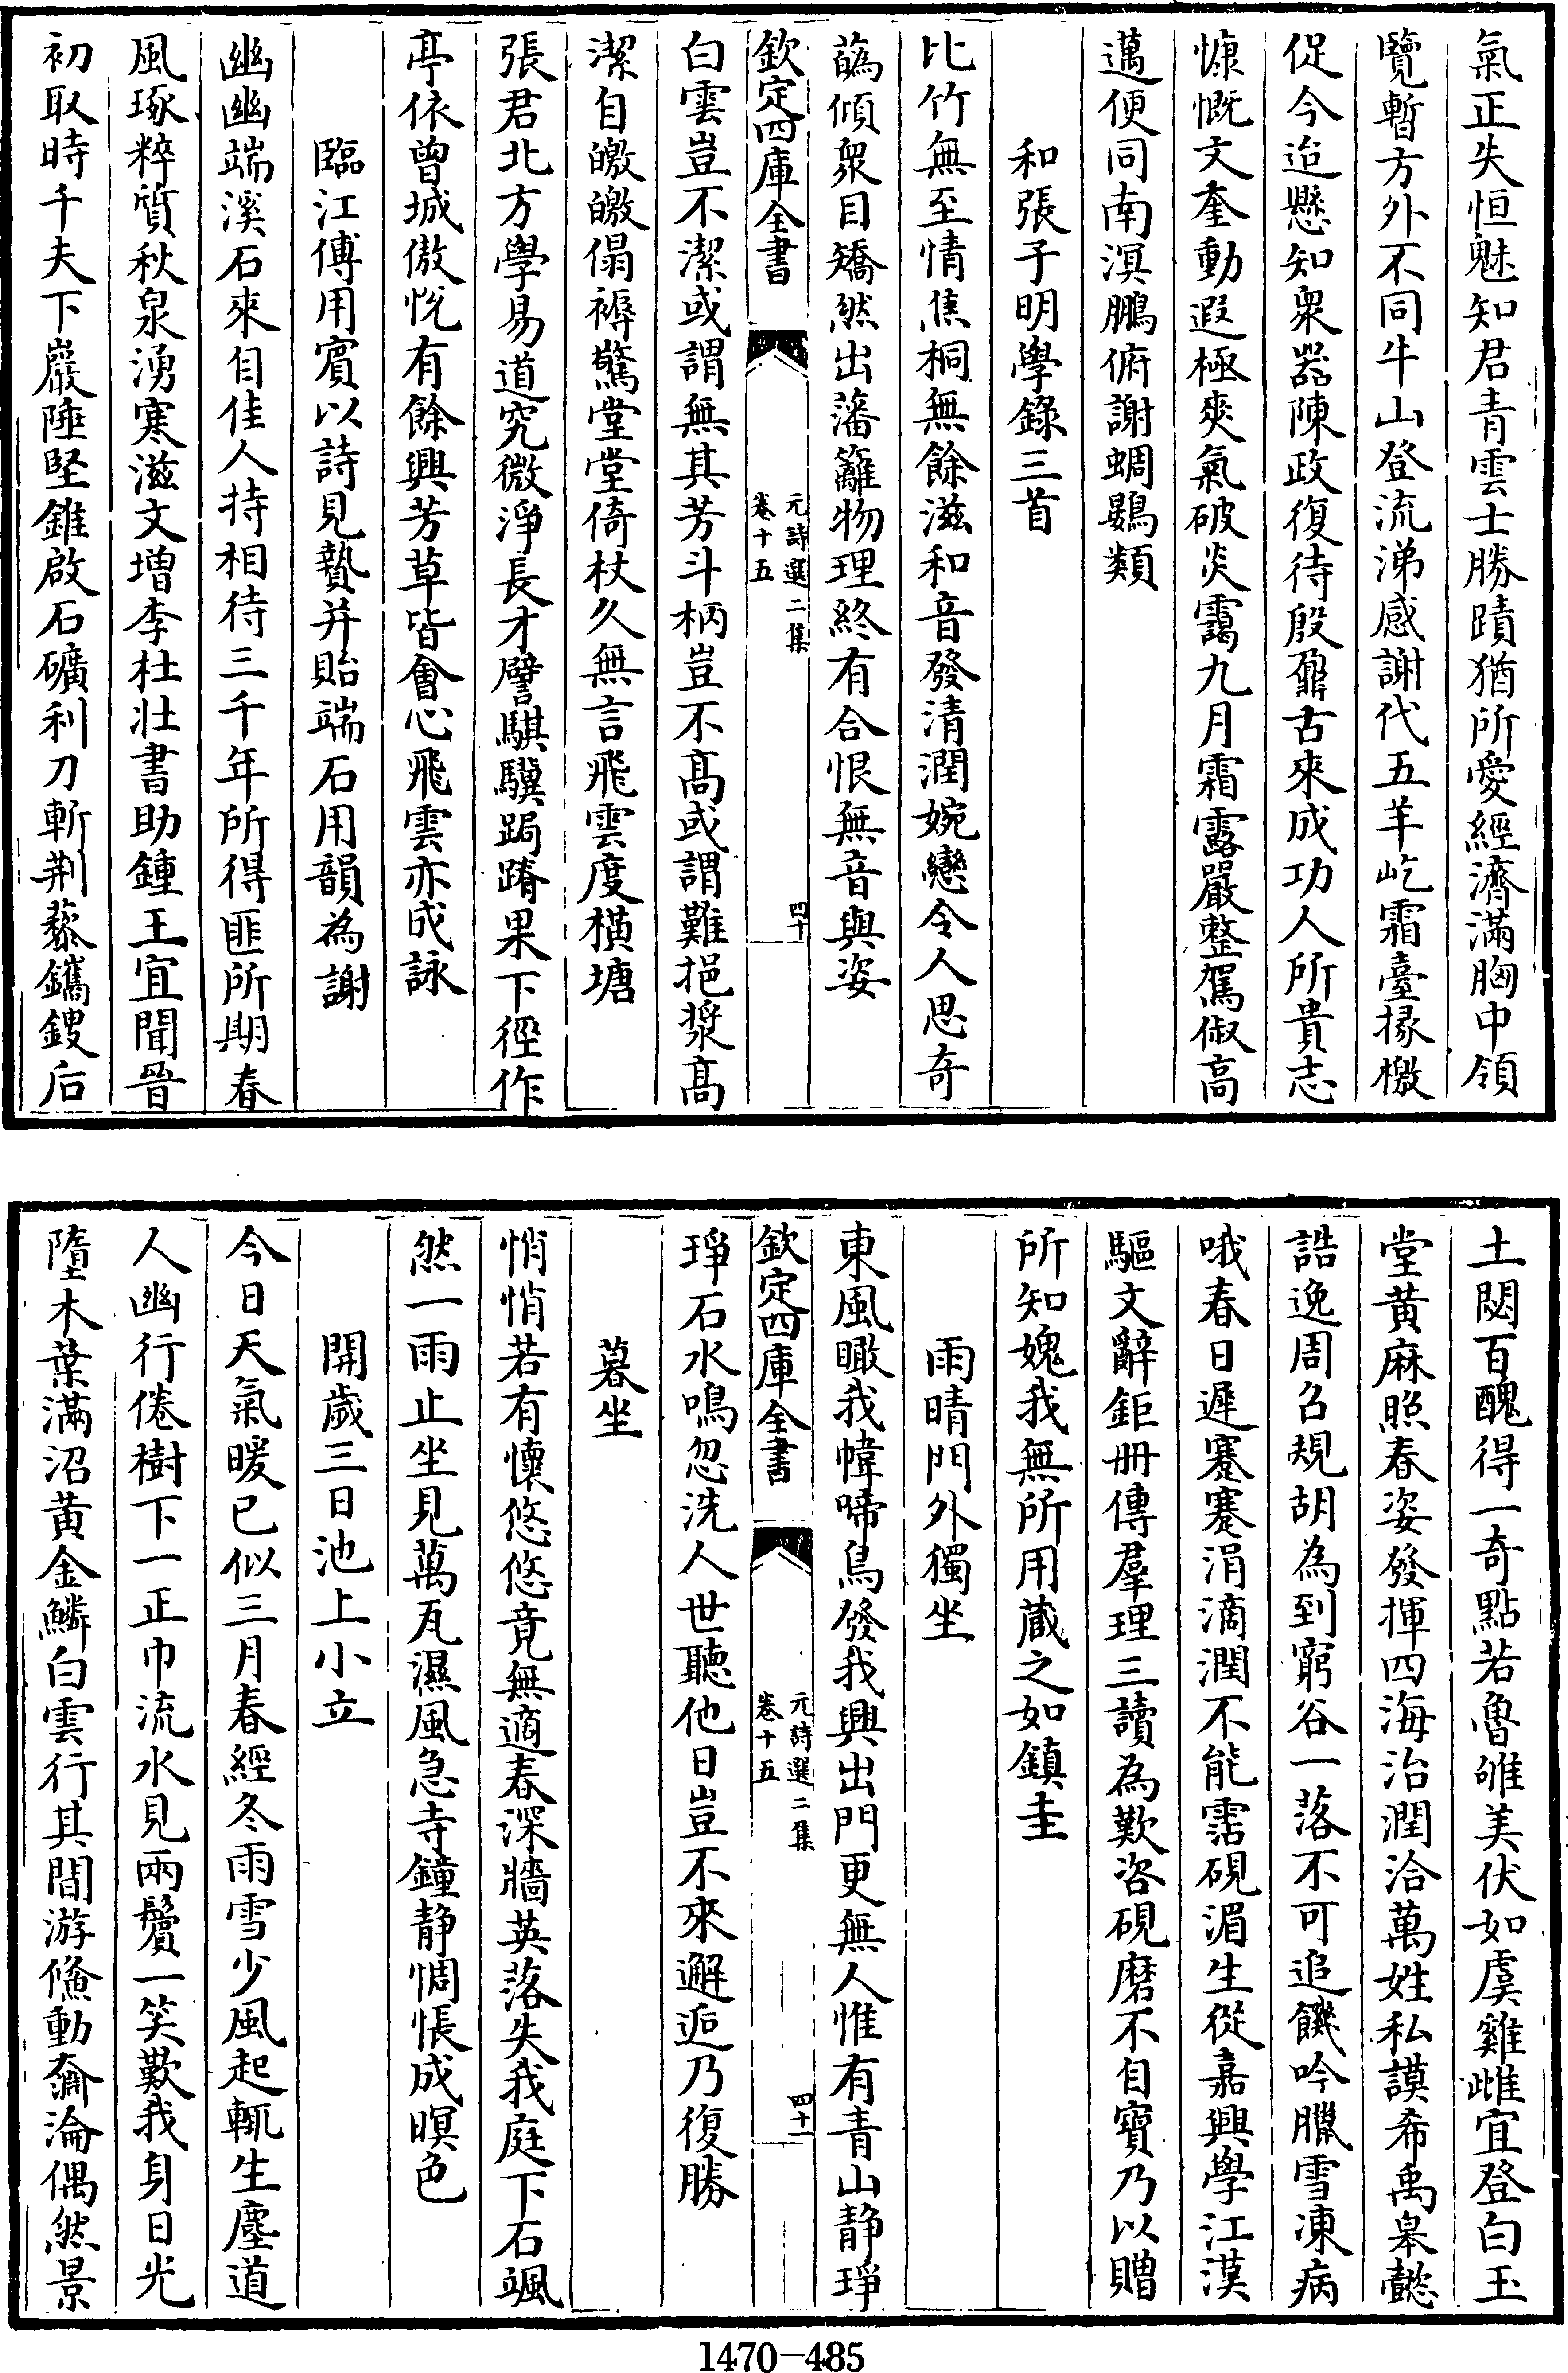 氣正失恒魅知君青雲士勝蹟猶所愛經濟滿胸中領
覽暫方外不同牛山登流涕感謝代五羊屹霜臺掾檄
促今迨懸知衆器陳政復待殷鼐古來成功人所貴志
慷慨文奎動遐極爽氣破炎靄九月霜露嚴整駕俶高
邁便同南溟鵬俯謝蜩鷃類
和張子明學錄三首
比竹無至情焦桐無餘滋和音發清潤婉戀令人思奇
蘤傾衆目矯然出藩籬物理終有合恨無音與姿
欽定四庫全書
元詩選二集
卷十五
四十
白雲豈不潔或謂無其芳斗柄豈不髙或謂難挹漿髙
潔自皦皦傷褥驚堂堂倚杖久無言飛雲度橫塘
張君北方學易道究微淨長才譬騏驥跼蹐果下徑作
亭依曾城傲恱有餘興芳草皆會心飛雲亦成詠
臨江傅用賓以詩見贄并貽端石用韻為謝
幽幽端溪石來自佳人持相待三千年所得匪所期春
風琢粹質秋泉湧寒滋文增李杜壯書助鍾王宜聞晉
初取時千夫下巖陲堅錐啟石礦利刀斬荆藜鑴鎪后
土閟百醜得一奇點若魯雊美伏如虞雞雌宜登白玉
堂黄麻照春姿發揮四海治潤洽萬姓私謨希禹皋懿
誥逸周召規胡為到窮谷一落不可追饑吟臘雪凍病
哦春日遲蹇蹇涓滴潤不能霑硯湄生從嘉興學江漢
驅文辭鉅册傳羣理三讀為歎咨硯磨不自寶乃以贈
所知媿我無所用藏之如鎮圭
雨晴門外獨坐
東風瞰我幃啼鳥發我興出門更無人惟有青山静琤
欽定四庫全書
元詩選二集
卷十五
四十一
琤石水鳴忽洗人世聽他日豈不來邂逅乃復勝
暮坐
悄悄若有懷悠悠竟無適春深牆英落失我庭下石颯
然一雨止坐見萬瓦濕風急寺鐘静惆悵成暝色
開歲三日池上小立
今日天氣暖已似三月春經冬雨雪少風起輒生塵道
人幽行倦樹下一正巾流水見兩鬢一笑歎我身日光
墮木葉滿沼黄金鱗白雲行其間游鯈動奫淪偶然景
1470-485